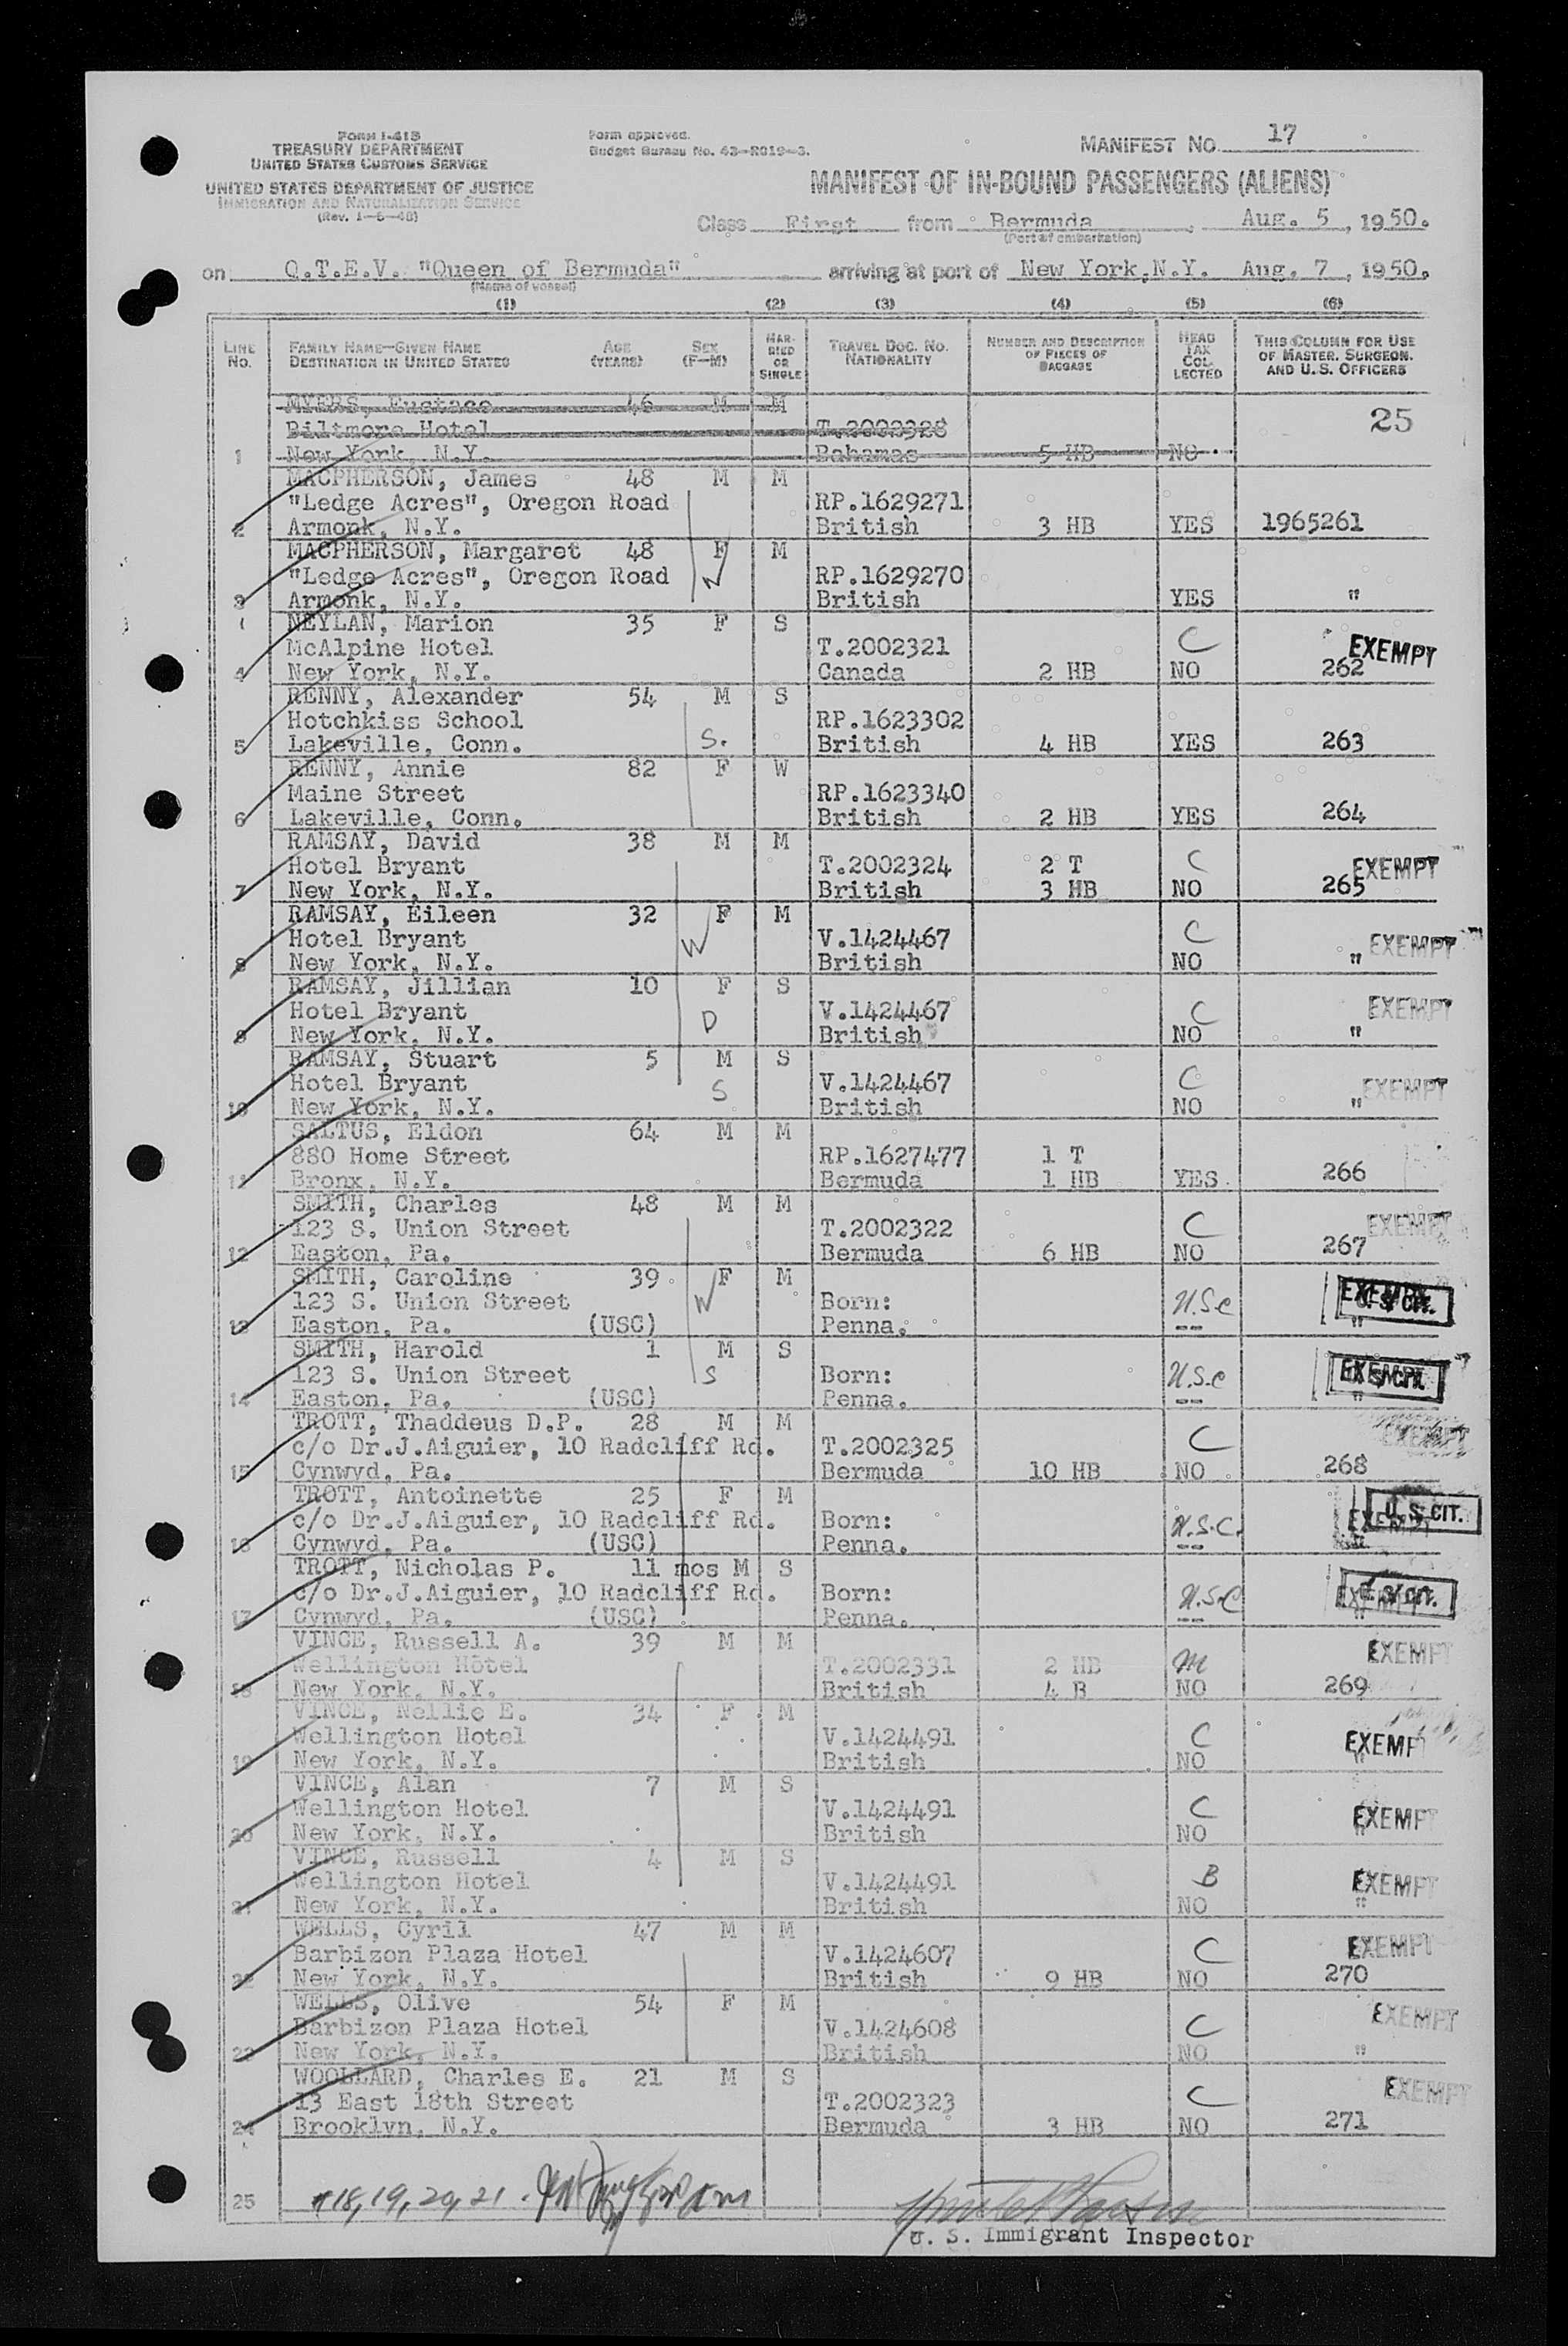 FORM I-415
TREASURY DEPARTMENT
UNITED STATES CUSTOMS SERVICE
UNITED STATES DEPARTMENT OF JUSTICE
IMMIGRATION AND NATURALIZATION SERVICE
(Rev. 1-5-48)
Form approved.
Budget Bureau No. 43-R019-3.
MANIFEST NO. 17
MANIFEST OF IN-BOUND PASSENGERS (ALIENS)
Class First from Bermuda, Aug. 5, 1950.
(Port of embarkation)
on Q.T.E.V. "Queen of Bermuda" arriving at port of New York, N.Y. Aug. 7, 1950.
(Name of vessel)
(1) (2) (3) (4) (5) (6)
LINE NO. FAMILY NAME—GIVEN NAME DESTINATION IN UNITED STATES AGE (YEARS) SEX (F—M) MARRIED OR SINGLE TRAVEL DOC. NO. NATIONALITY NUMBER AND DESCRIPTION OF PIECES OF BAGGAGE HEAD TAX COLLECTED THIS COLUMN FOR USE OF MASTER, SURGEON, AND U.S. OFFICERS
MYERS, Eustace 46 M M
Biltmore Hotel T.2002328 25
1 New York, N.Y. Bahamas 5 HB NO
MACPHERSON, James 48 M M
"Ledge Acres", Oregon Road RP.1629271
2 Armonk, N.Y. British 3 HB YES 1965261
MACPHERSON, Margaret 48 F M
"Ledge Acres", Oregon Road W RP.1629270
3 Armonk, N.Y. British YES "
NEYLAN, Marion 35 F S
McAlpine Hotel T.2002321 C EXEMPT
4 New York, N.Y. Canada 2 HB NO 262
RENNY, Alexander 54 M S
Hotchkiss School RP.1623302
5 Lakeville, Conn. S. British 4 HB YES 263
RENNY, Annie 82 F W
Maine Street RP.1623340
6 Lakeville, Conn. British 2 HB YES 264
RAMSAY, David 38 M M
Hotel Bryant T.2002324 2 T C EXEMPT
7 New York, N.Y. British 3 HB NO 265
RAMSAY, Eileen 32 F M
Hotel Bryant W V.1424467 C EXEMPT
8 New York, N.Y. British NO "
RAMSAY, Jillian 10 F S
Hotel Bryant D V.1424467 C EXEMPT
9 New York, N.Y. British NO "
RAMSAY, Stuart 5 M S
Hotel Bryant S V.1424467 C EXEMPT
10 New York, N.Y. British NO "
SALTUS, Eldon 64 M M
880 Home Street RP.1627477 1 T
11 Bronx, N.Y. Bermuda 1 HB YES 266
SMITH, Charles 48 M M
123 S. Union Street T.2002322 C EXEMPT
12 Easton, Pa. Bermuda 6 HB NO 267
SMITH, Caroline 39 F M
123 S. Union Street W Born: U.S.C EXEMPT U. S. CIT.
13 Easton, Pa. (USC) Penna. -- "
SMITH, Harold 1 M S
123 S. Union Street S Born: U.S.C EXEMPT
14 Easton, Pa. (USC) Penna. -- "
TROTT, Thaddeus D.P. 28 M M
c/o Dr.J.Aiguier, 10 Radcliff Rd. T.2002325 C EXEMPT
15 Cynwyd, Pa. Bermuda 10 HB NO 268
TROTT, Antoinette 25 F M
c/o Dr.J.Aiguier, 10 Radcliff Rd. Born: U.S.C. EXEMPT U. S. CIT.
16 Cynwyd, Pa. (USC) Penna. --
TROTT, Nicholas P. 11 mos M S
c/o Dr.J.Aiguier, 10 Radcliff Rd. Born: U.S.C EXEMPT U. S. CIT.
17 Cynwyd, Pa. (USC) Penna. -- "
VINCE, Russell A. 39 M M EXEMPT
Wellington Hotel T.2002331 2 HB M
18 New York, N.Y. British 4 B NO 269
VINCE, Nellie E. 34 F M
Wellington Hotel V.1424491 C EXEMPT
19 New York, N.Y. British NO "
VINCE, Alan 7 M S
Wellington Hotel V.1424491 C EXEMPT
20 New York, N.Y. British NO "
VINCE, Russell 4 M S
Wellington Hotel V.1424491 B EXEMPT
21 New York, N.Y. British NO "
WELLS, Cyril 47 M M
Barbizon Plaza Hotel V.1424607 C EXEMPT
22 New York, N.Y. British 9 HB NO 270
WELLS, Olive 54 F M
Barbizon Plaza Hotel V.1424608 C EXEMPT
23 New York, N.Y. British NO "
WOOLLARD, Charles E. 21 M S
13 East 18th Street T.2002323 C EXEMPT
24 Brooklyn, N.Y. Bermuda 3 HB NO 271
25 #18, 19, 20, 21.
U. S. Immigrant Inspector